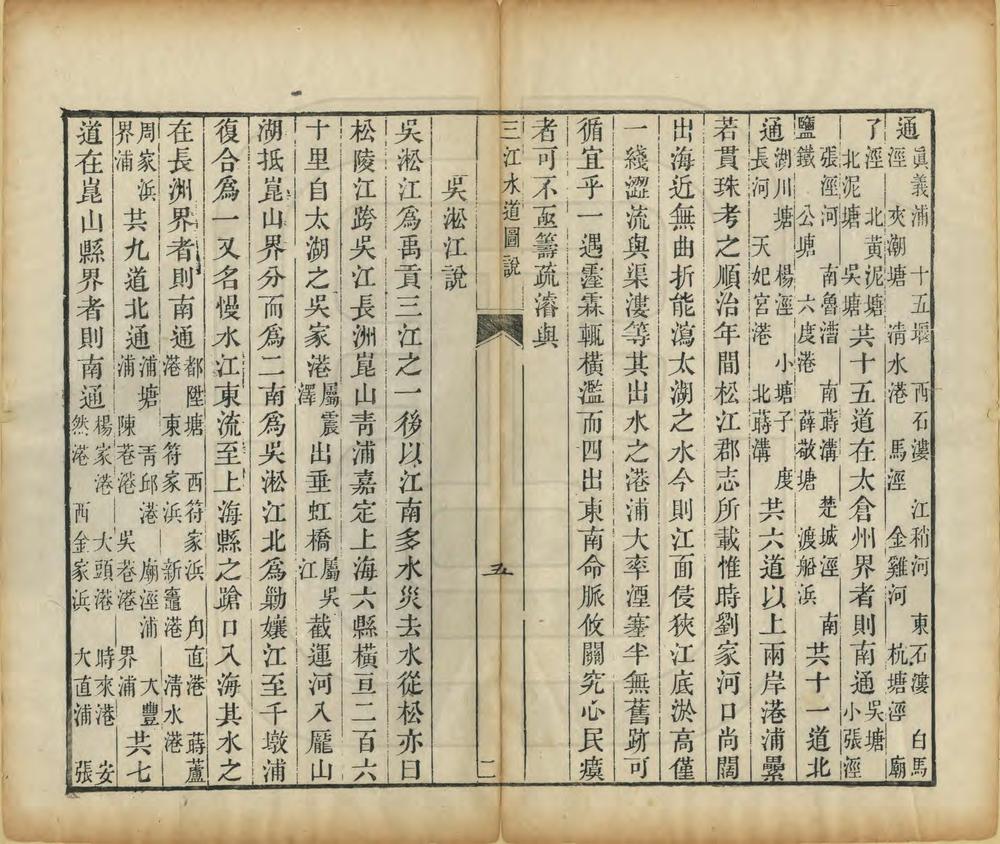 通真義浦　十五堰　西石漊　江稍河　東石漊　白馬
涇　夾潮塘　清水港　馬涇　金雞河　杭塘涇　廟
了涇　北黃泥塘　共十五道在太倉州界者則南通吳塘
北泥塘　吳塘　小張涇
張涇河　南魯漕　南蒔溝　楚城涇　南共十一道北
鹽鐵　公塘　六度港　薛敬塘　渡船浜
通湖川塘　楊涇　小塘子　度共六道以上兩岸港浦纍
長河　天妃宮港　北蒔溝
若貫珠考之順治年間松江郡志所載惟時劉家河口尚闊
出海近無曲折能瀉太湖之水今則江面侵狹江底淤高僅
一綫澀流與渠漊等其出水之港浦大率湮塞半無舊跡可
循宜乎一遇霪霖輒橫濫而四出東南命脈攸關究心民瘼
者可不亟籌疏濬與
三江水道圖說　五　二
吳淞江說
吳淞江爲禹貢三江之一後以江南多水災去水從松亦曰
松陵江跨吳江長洲崑山靑浦嘉定上海六縣橫亘二百六
十里自太湖之吳家港屬震澤出垂虹橋屬吳江截運河入龐山
湖抵崑山界分而爲二南爲吳淞江北爲勦孃江至千墩浦
復合爲一又名慢水江東流至上海縣之蹌口入海其水之
在長洲界者則南通都陞塘　西符家浜　甪直港　蒔蘆
港　東符家浜　新竈港　淸水港
周家浜共九道北通浦塘　靑邱港　廟涇浦　大豐共七
界浦　浦　陳巷港　吳巷港　界浦
道在崑山縣界者則南通楊家港　大頭港　時來港　安
然港　西金家浜　大直浦　張